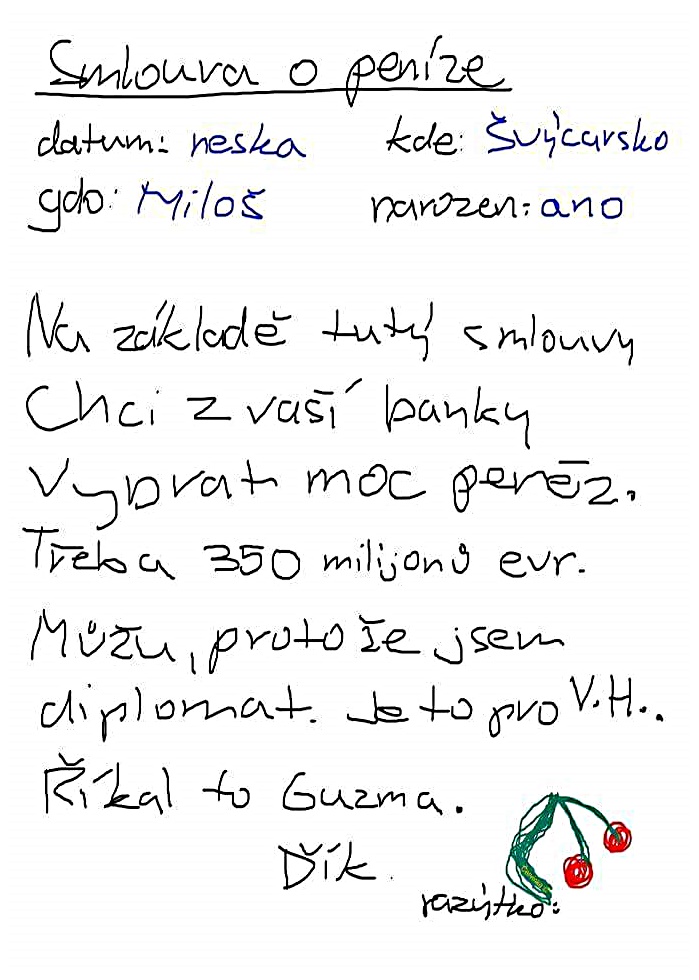 Smlouva o peníze
datum: neska kde: Švýcarsko
gdo: Miloš narozen: ano
Na základě tutý smlouvy
Chci z vaší banky
vybrat moc penēz.
Třeba 350 milijonů evr.
Můžu, protože jsem
diplomat. Je to pro V.H..
Říkal to Guzma.
Dík.
razýtko: